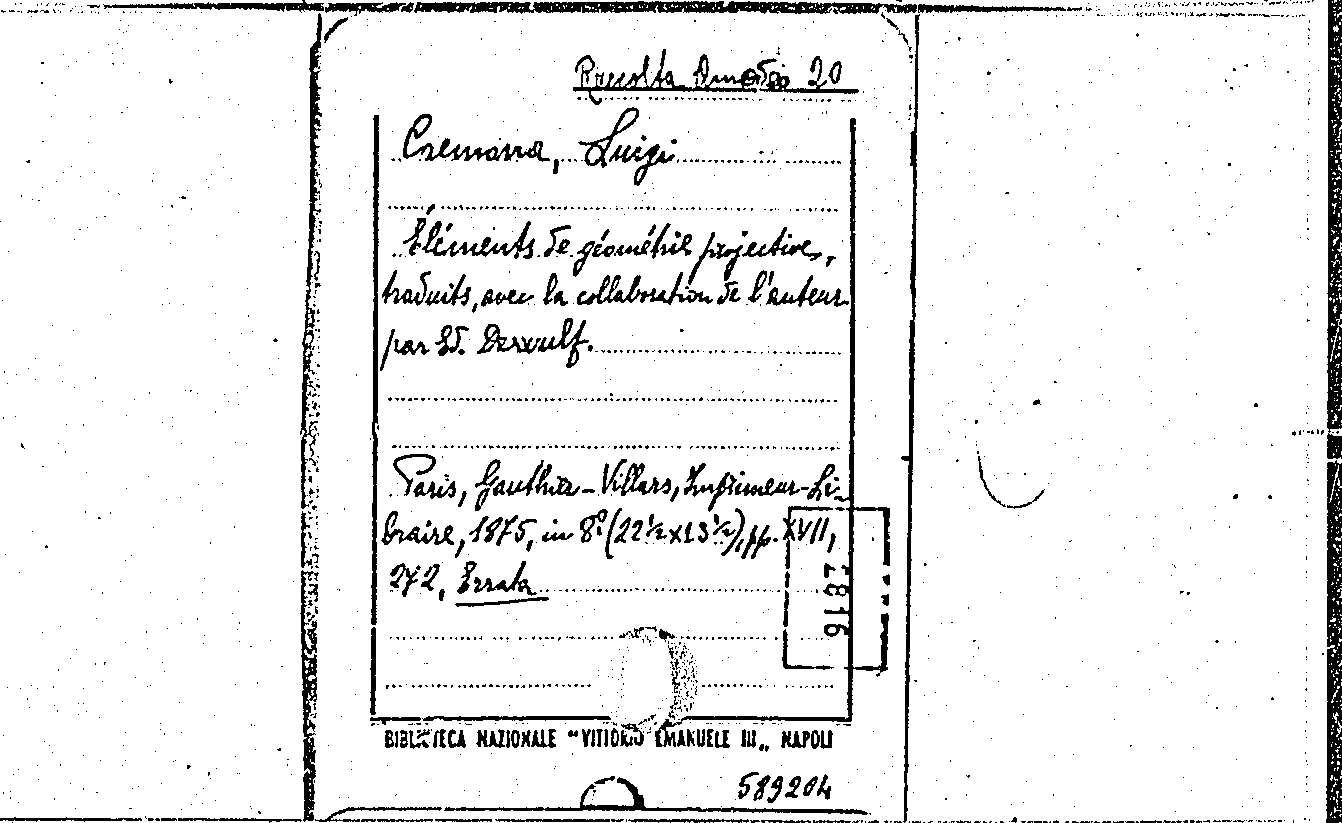 Raccolta Amodeo 20
Cremona, Luigi
Éléments de géométrie projective,
traduits, avec la collaboration de l'auteur
par Ed. Dewulf.
Paris, Gauthier-Villars, Imprimeur-Li-
braire, 1875, in 8º (22½x13½), pp. XVII,
272, Errata
2816
BIBLIOTECA NAZIONALE "VITTORIO EMANUELE III„ NAPOLI
589204